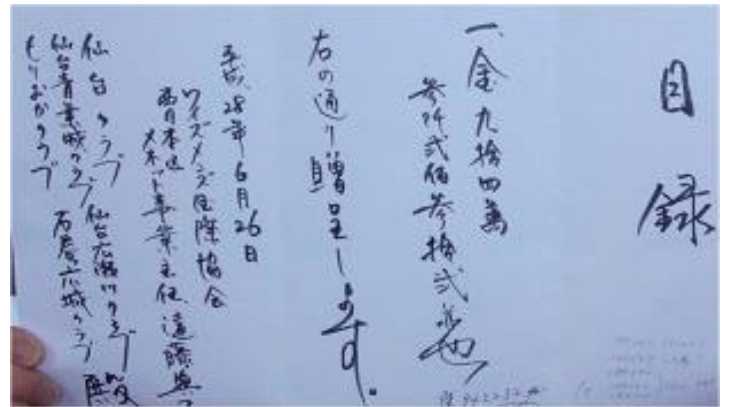 目録
一、金 九拾四萬
参阡弐佰参拾弐円也
右の通り贈呈します。
平成28年6月26日
ワイズメンズ国際協会
西日本区
メネット事業主任 遠藤
仙台クラブ 仙台広瀬川クラブ 殿
仙台青葉城クラブ 石巻広域クラブ
もりおかクラブ